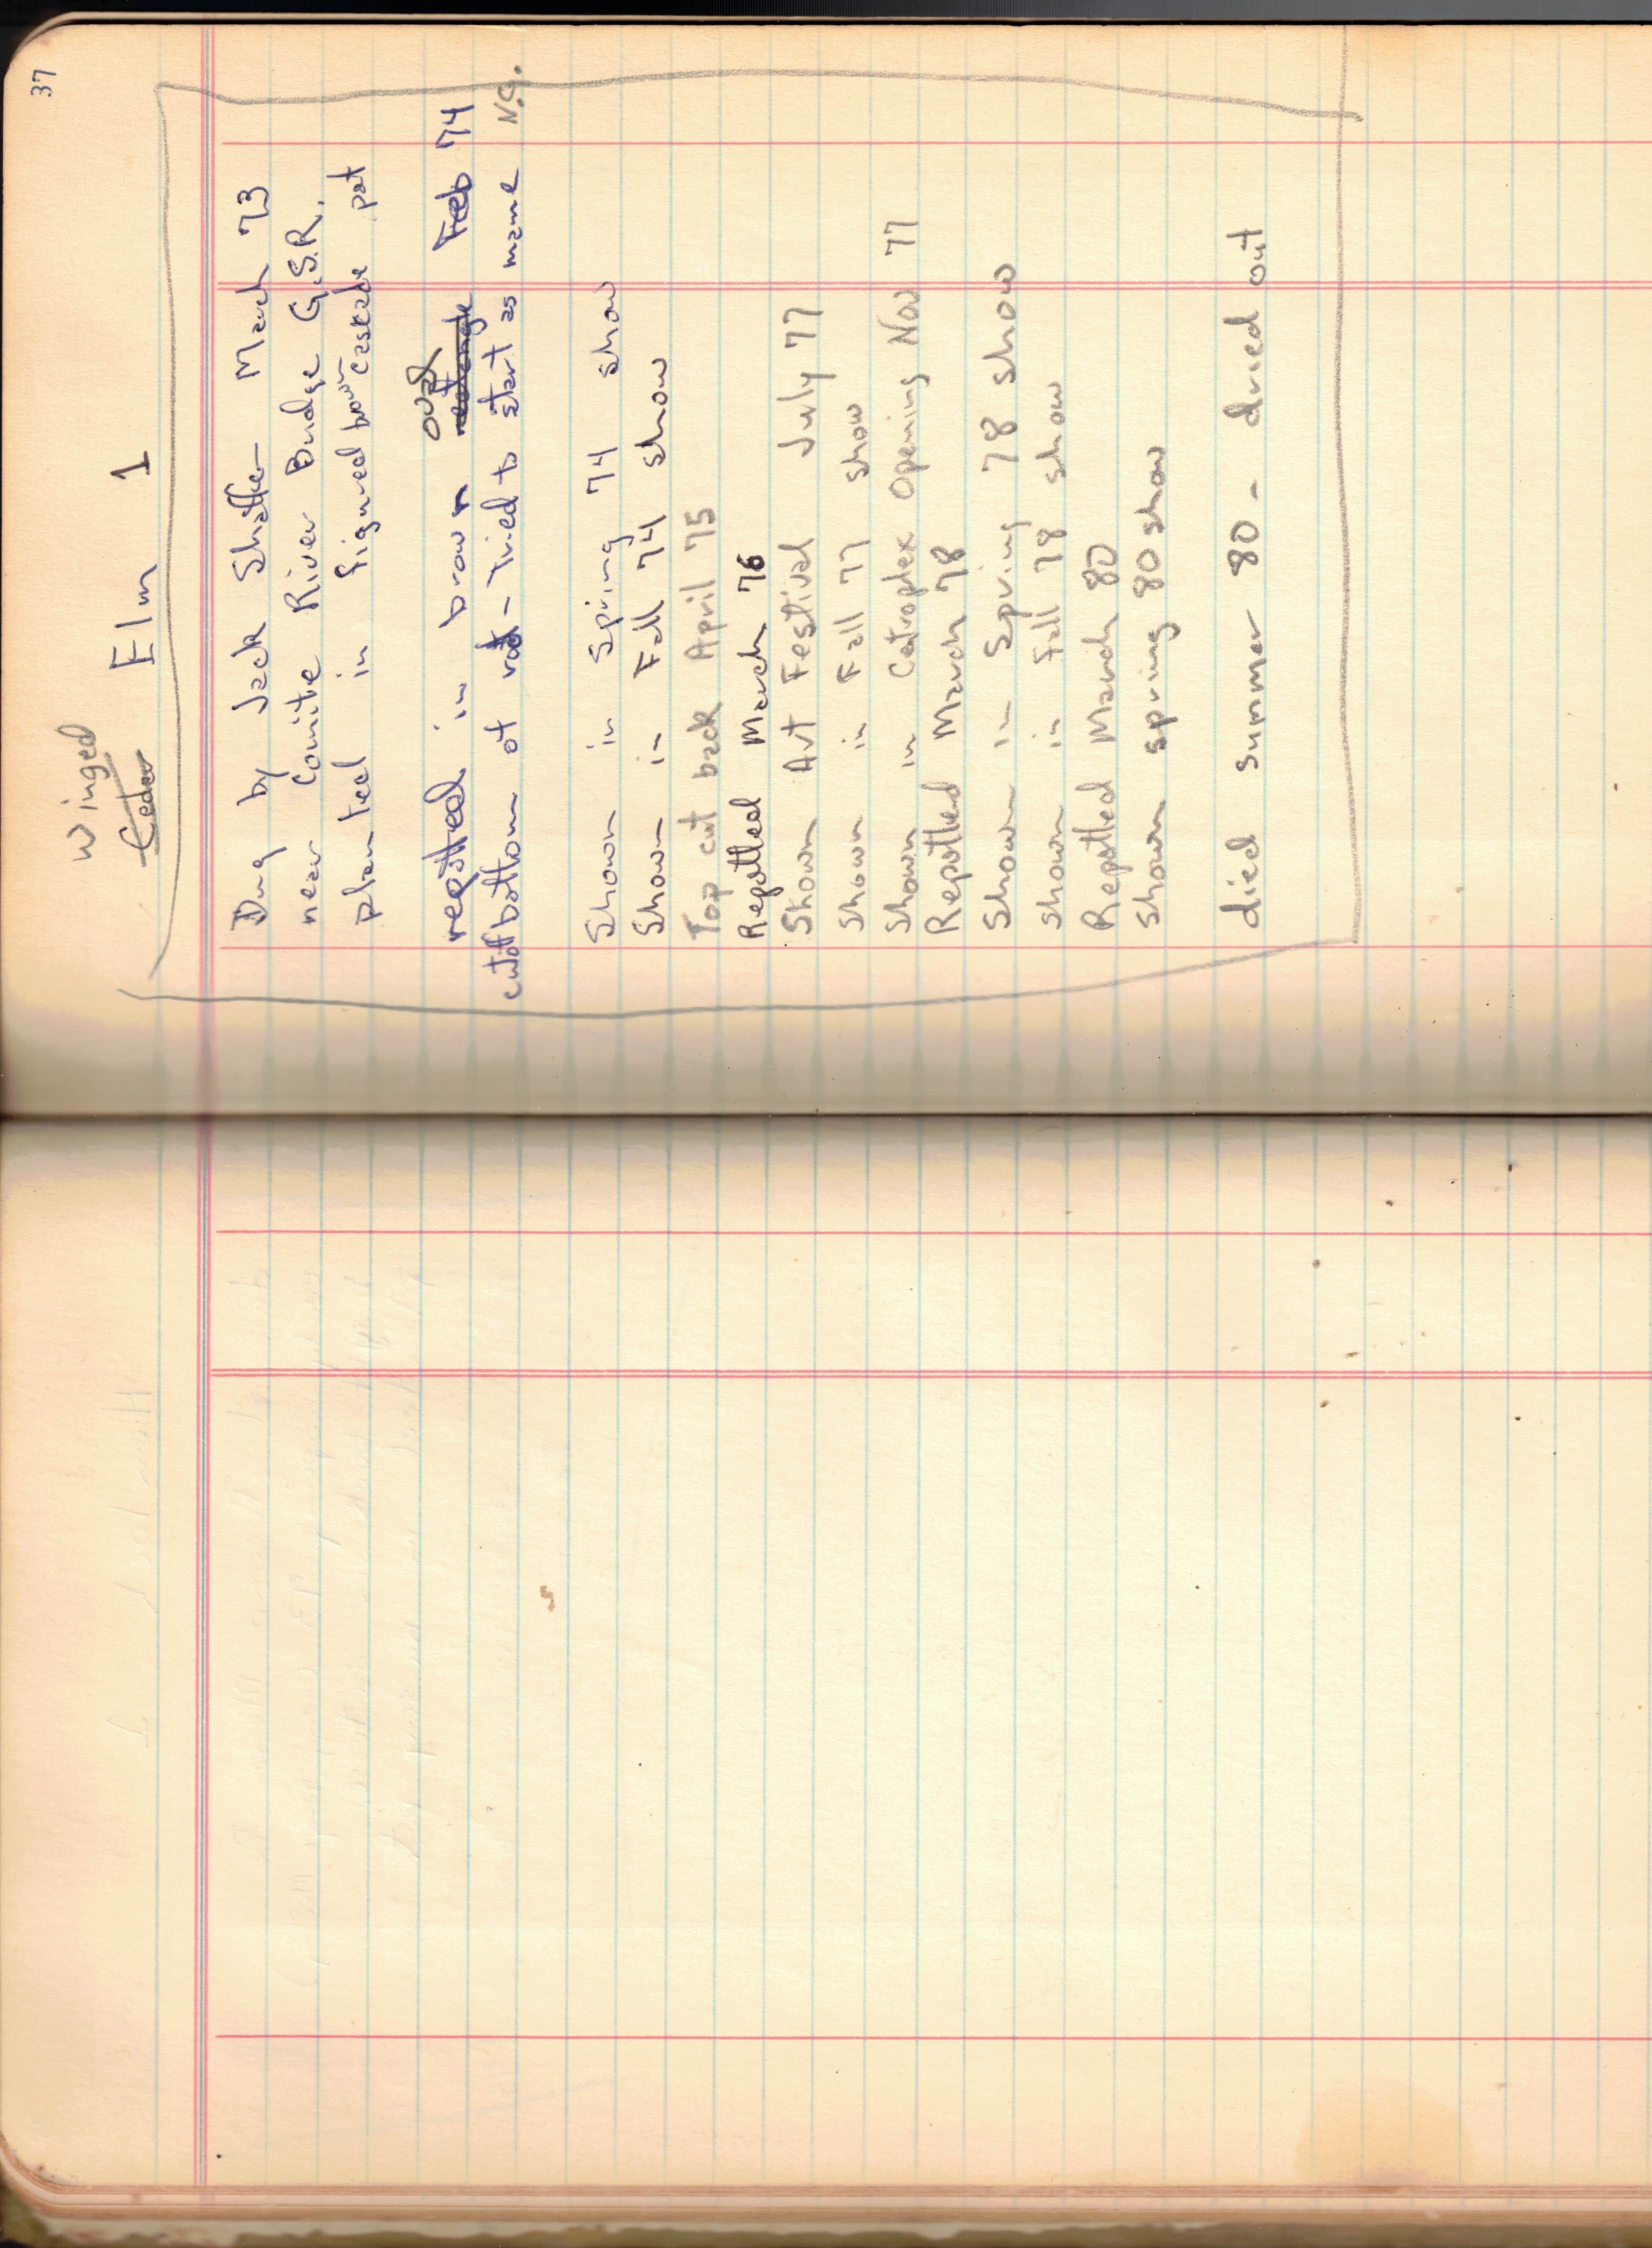 37
Winged
Ceder Elm 1
Dug by Jack Shaffer March 73
near Comite River Bridge G.S.R.
planted in figured brown cascade pot
repotted in brown oval rectangle Feb 74
cut off bottom of root - Tried to start as mame N.G.
Shown in Spring 74 show
Shown in Fall 74 show
Top cut back April 75
Repotted March 76
Shown Art Festival July 77
Shown in Fall 77 show
Shown in Centroplex Opening Nov 77
Repotted March 78
Shown in Spring 78 show
Shown in Fall 78 show
Repotted March 80
Shown spring 80 show
died summer 80 - dried out